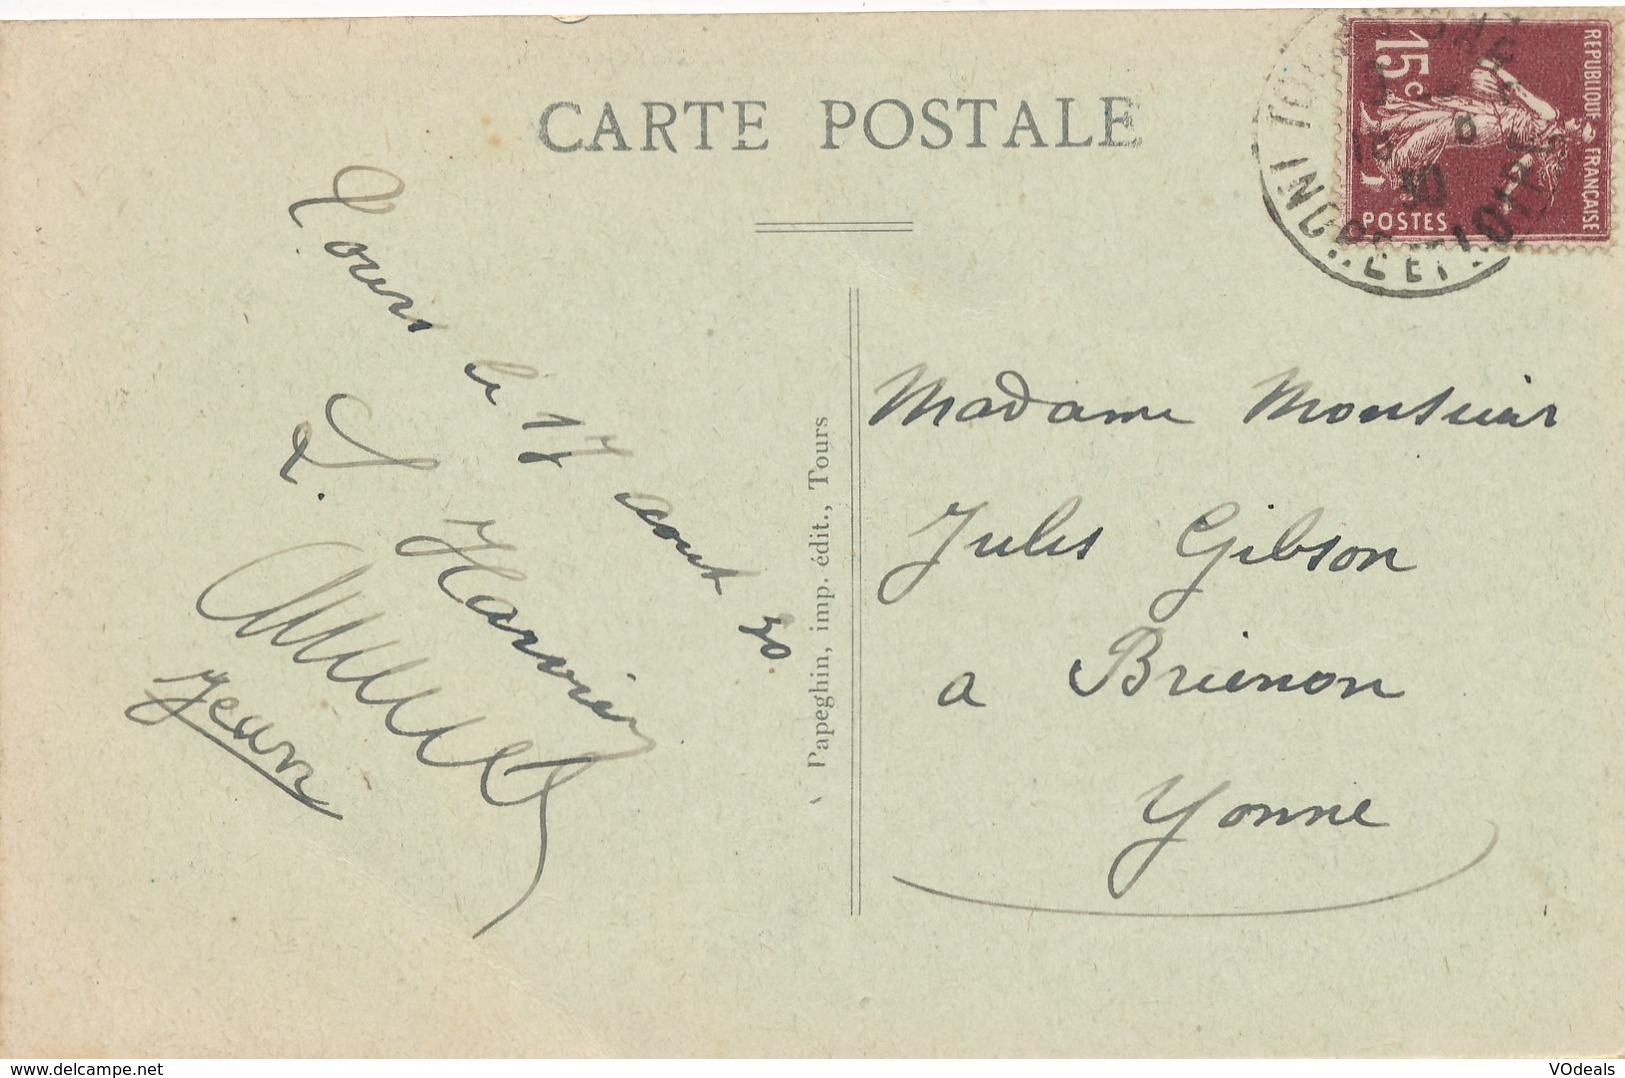 CARTE POSTALE
REPUBLIQUE FRANÇAISE
15c
POSTES
INDRE ET LOIRE
Tours le 17 aout 30
Jean
Papeghin, imp. édit., Tours
Madame Monsieur
Jules Gibson
a Brienon
Yonne
delcampe.net
VOdeals